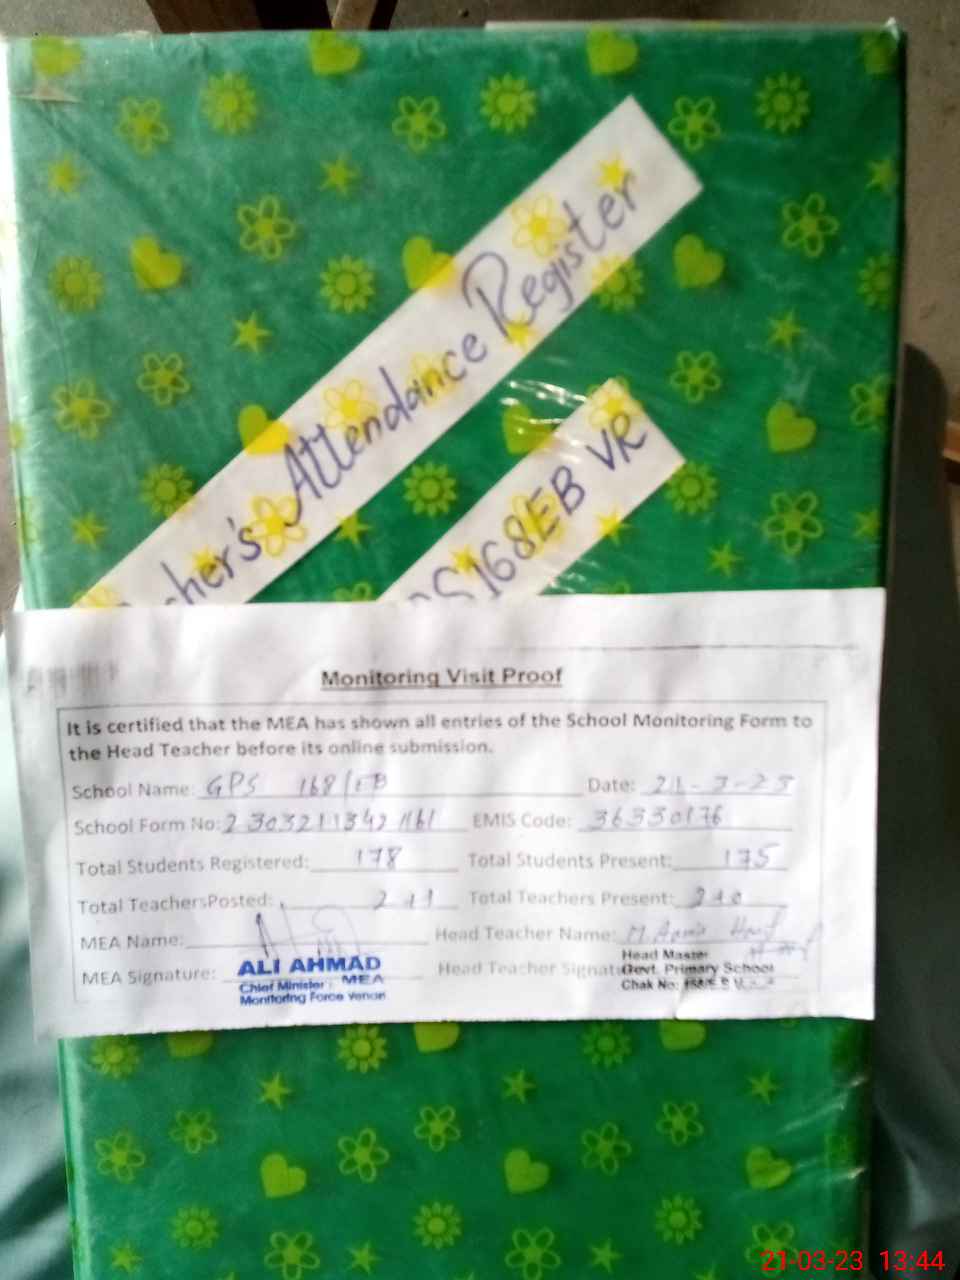 Attendance Register
168EB VR
Monitoring Visit Proof
It is certified that the MEA has shown all entries of the School Monitoring Form to
the Head Teacher before its online submission.
School Name: GPS 168/EB Date: 21-3-23
School Form No: EMIS Code: 36330176
Total Students Registered: 178 Total Students Present: 175
Total TeachersPosted: Total Teachers Present:
MEA Name: Head Teacher Name: M.
MEA Signature: Head Teacher
ALI AHMAD
MEA
Chief Minister
Monitoring Force
Head Master
Govt. Primary School
Chak No:
21-03-23 13:44